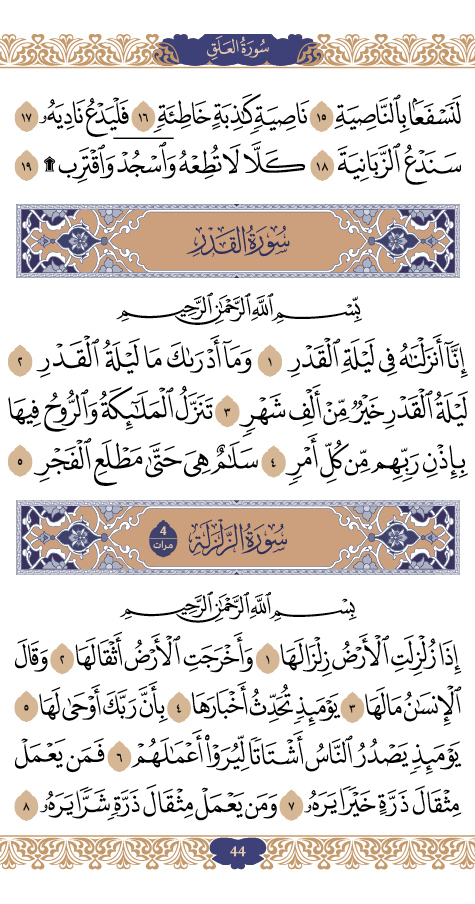 سُورَةُ العَلَقِ
لَنَسْفَعًۢا بِٱلنَّاصِيَةِ ١٥ نَاصِيَةٍ كَٰذِبَةٍ خَاطِئَةٍ ١٦ فَلْيَدْعُ نَادِيَهُۥ ١٧
سَنَدْعُ ٱلزَّبَانِيَةَ ١٨ كَلَّا لَا تُطِعْهُ وَٱسْجُدْ وَٱقْتَرِب ۩ ١٩
سُورَةُ القَدْرِ
بِسْمِ ٱللَّهِ ٱلرَّحْمَٰنِ ٱلرَّحِيمِ
إِنَّآ أَنزَلْنَٰهُ فِى لَيْلَةِ ٱلْقَدْرِ ١ وَمَآ أَدْرَىٰكَ مَا لَيْلَةُ ٱلْقَدْرِ ٢
لَيْلَةُ ٱلْقَدْرِ خَيْرٌ مِّنْ أَلْفِ شَهْرٍ ٣ تَنَزَّلُ ٱلْمَلَٰٓئِكَةُ وَٱلرُّوحُ فِيهَا
بِإِذْنِ رَبِّهِم مِّن كُلِّ أَمْرٍ ٤ سَلَٰمٌ هِىَ حَتَّىٰ مَطْلَعِ ٱلْفَجْرِ ٥
سُورَةُ الزَّلْزَلَةِ
4
مرات
بِسْمِ ٱللَّهِ ٱلرَّحْمَٰنِ ٱلرَّحِيمِ
إِذَا زُلْزِلَتِ ٱلْأَرْضُ زِلْزَالَهَا ١ وَأَخْرَجَتِ ٱلْأَرْضُ أَثْقَالَهَا ٢ وَقَالَ
ٱلْإِنسَٰنُ مَا لَهَا ٣ يَوْمَئِذٍ تُحَدِّثُ أَخْبَارَهَا ٤ بِأَنَّ رَبَّكَ أَوْحَىٰ لَهَا ٥
يَوْمَئِذٍ يَصْدُرُ ٱلنَّاسُ أَشْتَاتًا لِّيُرَوْا۟ أَعْمَٰلَهُمْ ٦ فَمَن يَعْمَلْ
مِثْقَالَ ذَرَّةٍ خَيْرًا يَرَهُۥ ٧ وَمَن يَعْمَلْ مِثْقَالَ ذَرَّةٍ شَرًّا يَرَهُۥ ٨
44